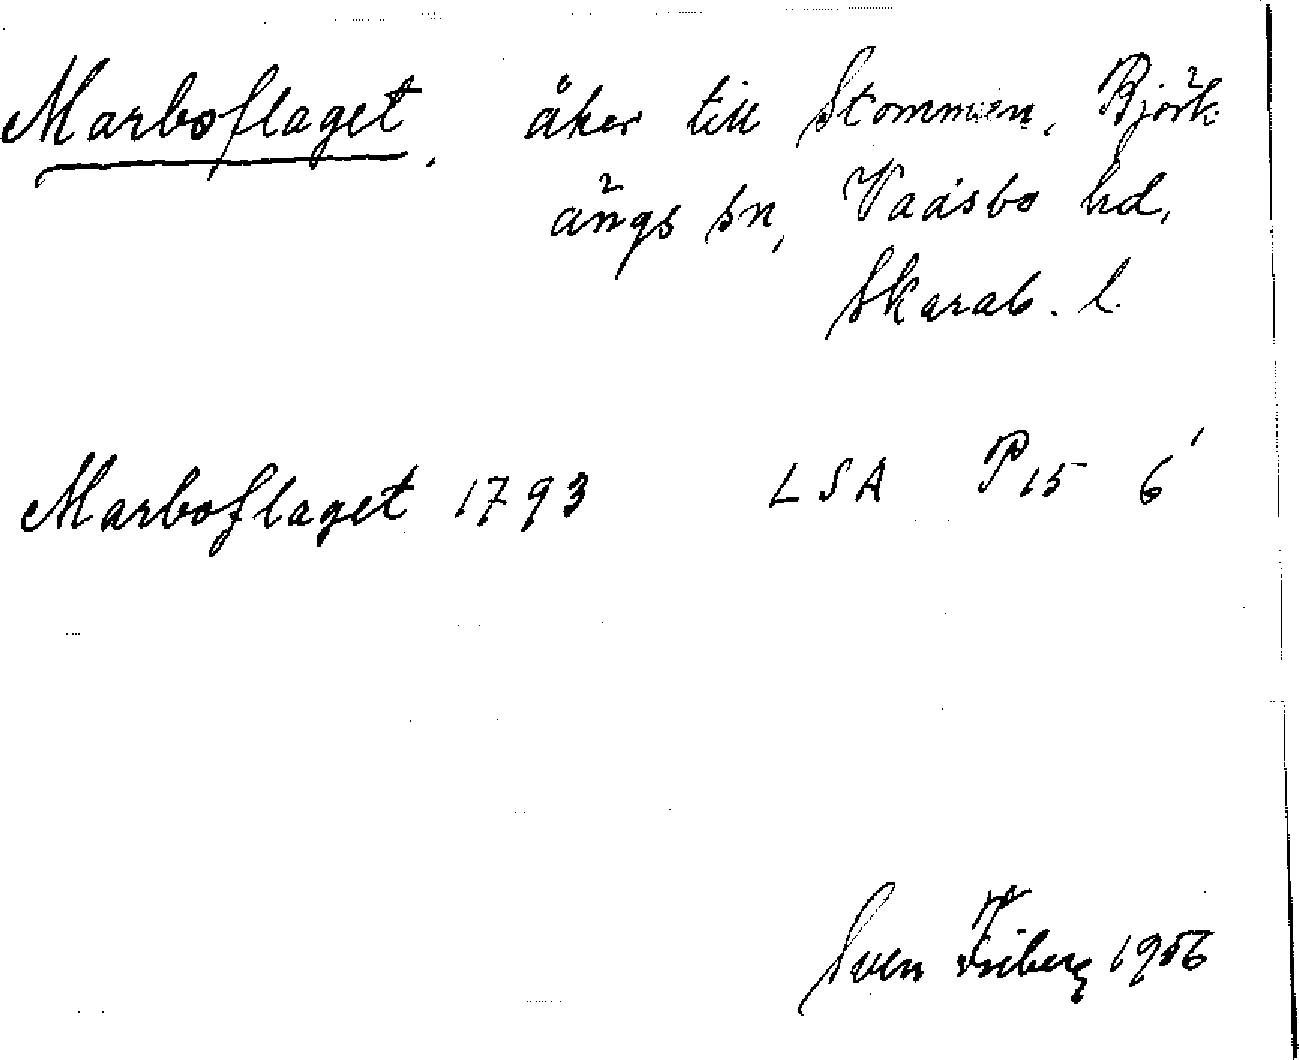 Marboflaget. åker till Stommen, Björk
ängs sn, Vadsbo hd,
Skarab. l.
Marboflaget 1793 LSA P15 6'
Sven Friberg 1956